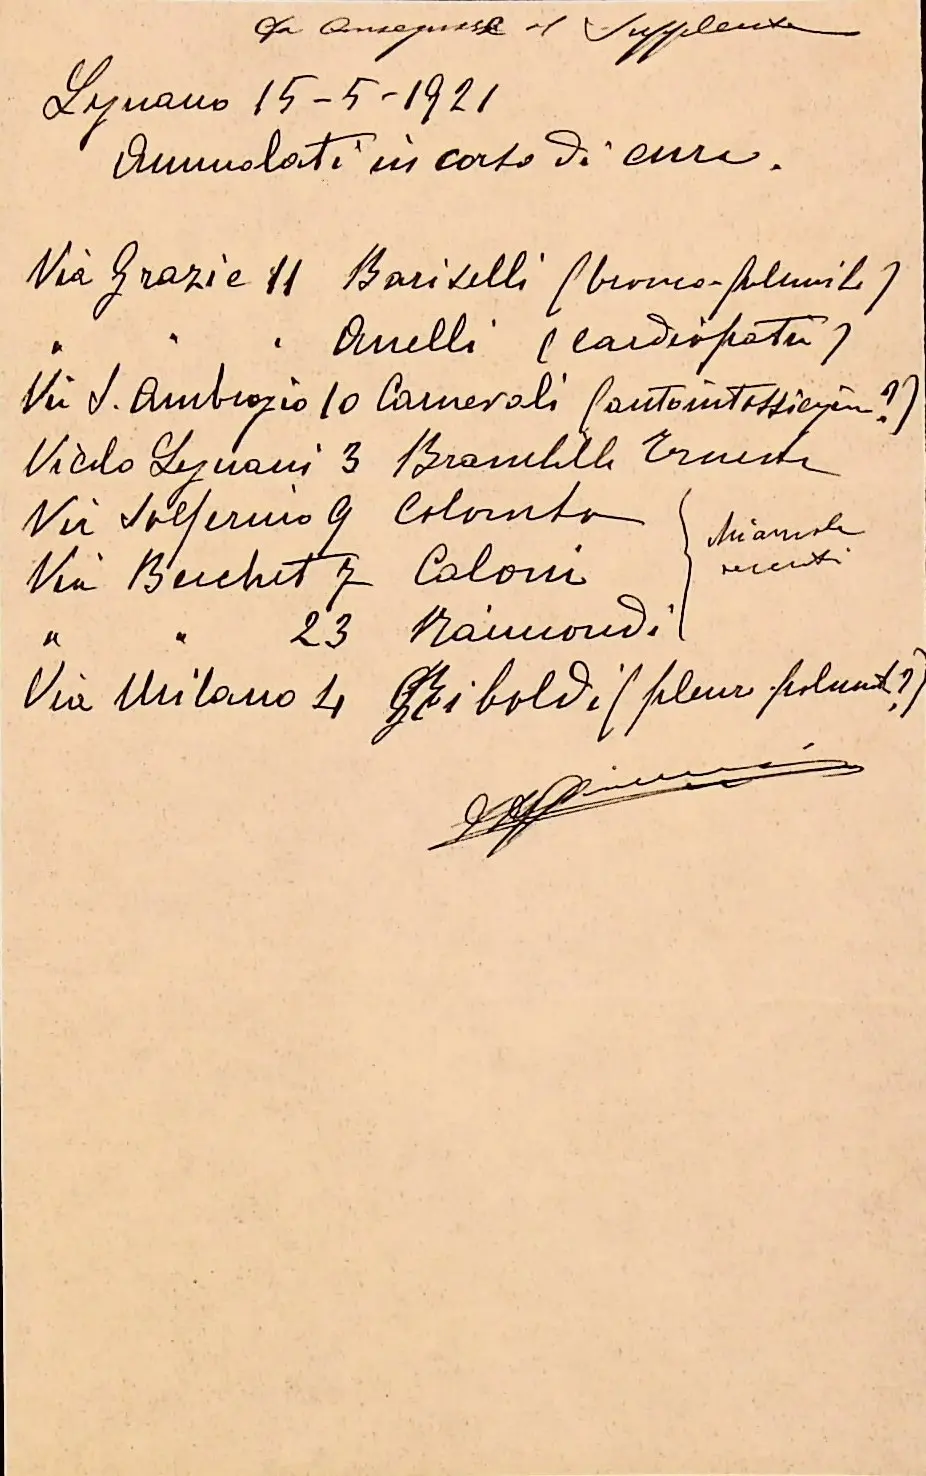 Da consegnare al Supplente
Legnano 15-5-1921
Ammalati in corso di cura.
Via Grazie 11 Bariselli (bronco-polmonite)
" " " Anelli (cardiopatia)
Via S. Ambrogio 10 Carnevali (autointossicazione?)
Vicolo Legnani 3 Brambilla Ernesta
Via Solferino 9 Colombo
Via Berchet 7 Caloni
chiamate
recenti
" " 23 Raimondi
Via Milano 4 Ghiboldi (pleuro polmonite?)